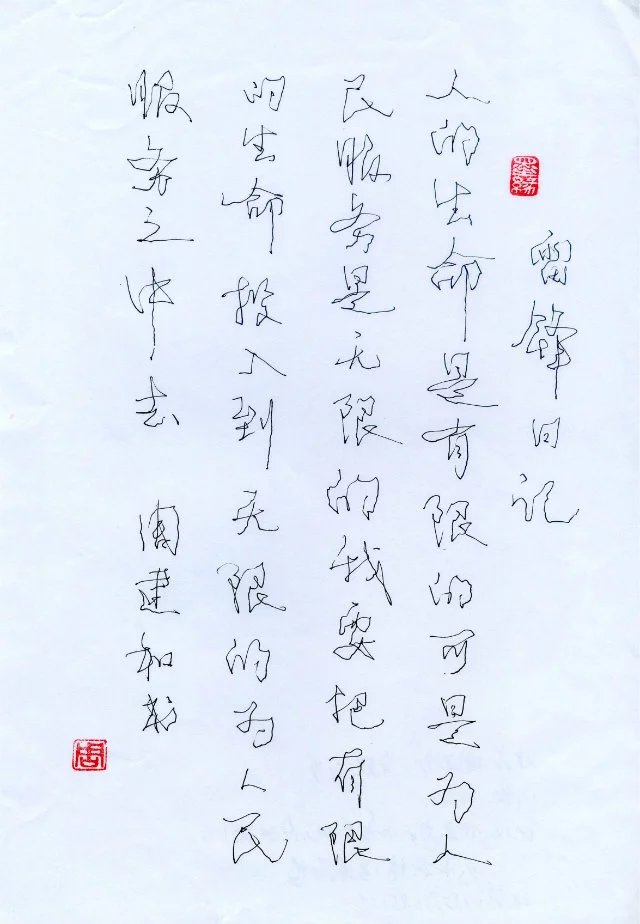 墨缘
雷锋日记
人的生命是有限的可是为人
民服务是无限的我要把有限
的生命投入到无限的为人民
服务之中去 周建和
周